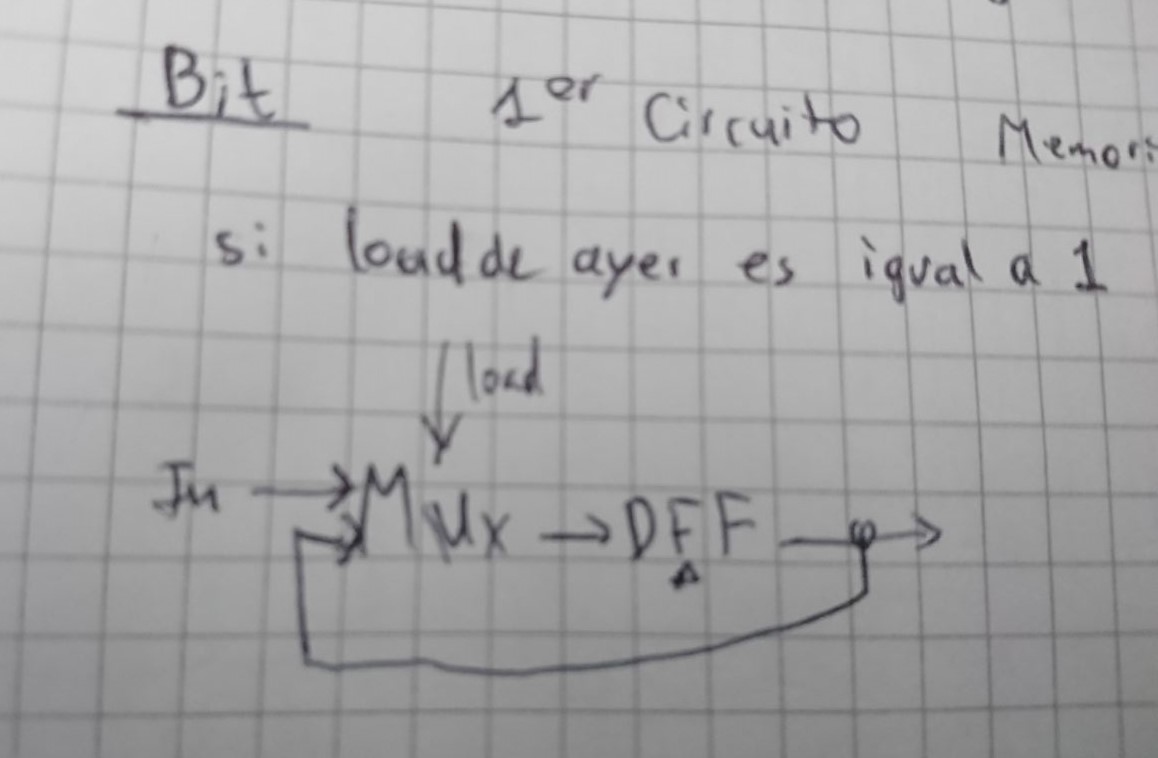 Bit 1er Circuito Memori
si load de ayer es igual a 1
load
In → Mux → DFF →